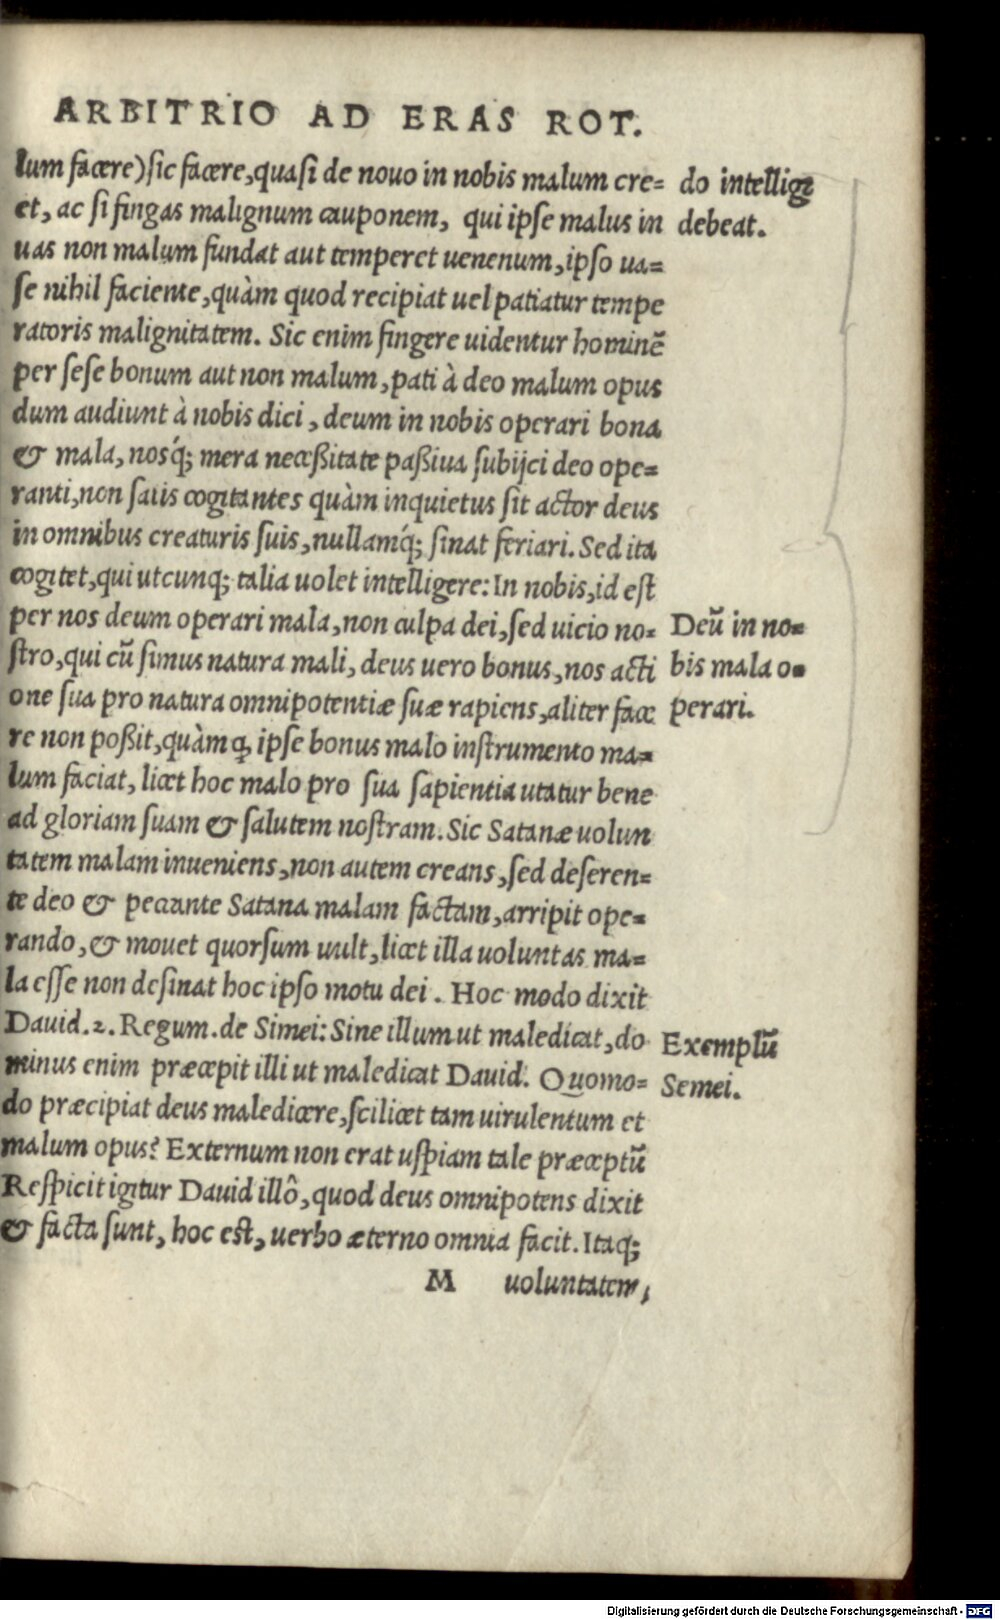 ARBITRIO AD ERAS ROT.
lum facere) sic facere, quasi de nouo in nobis malum cre=
et, ac si fingas malignum cauponem, qui ipse malus in
uas non malum fundat aut temperet uenenum, ipso ua=
se nihil faciente, quàm quod recipiat uel patiatur tempe
ratoris malignitatem. Sic enim fingere uidentur hominẽ
per sese bonum aut non malum, pati à deo malum opus
dum audiunt à nobis dici, deum in nobis operari bona
& mala, nosq́; mera neceßitate paßiua subijci deo ope=
ranti, non satis cogitantes quàm inquietus sit actor deus
in omnibus creaturis suis, nullamq́; sinat feriari. Sed ita
cogitet, qui utcunq; talia uolet intelligere: In nobis, id est
per nos deum operari mala, non culpa dei, sed uicio no=
stro, qui cũ simus natura mali, deus uero bonus, nos acti
one sua pro natura omnipotentiæ suæ rapiens, aliter face
re non poßit, quàm ꝗ ipse bonus malo instrumento ma=
lum faciat, licet hoc malo pro sua sapientia utatur bene
ad gloriam suam & salutem nostram. Sic Satanæ uolun
tatem malam inueniens, non autem creans, sed deseren=
te deo & peccante Satana malam factam, arripit ope=
rando, & mouet quorsum uult, licet illa uoluntas ma=
la esse non desinat hoc ipso motu dei. Hoc modo dixit
Dauid. 2. Regum. de Simei: Sine illum ut maledicat, do
minus enim præcepit illi ut maledicat Dauid. Quomo=
do præcipiat deus maledicere, scilicet tam uirulentum et
malum opus? Externum non erat uspiam tale præceptũ
Respicit igitur Dauid illô, quod deus omnipotens dixit
& facta sunt, hoc est, uerbo æterno omnia facit. Itaq;
M uoluntatem,
do intellige
debeat.
Deũ in no=
bis mala o=
perari.
Exemplũ
Semei.
Digitalisierung gefördert durch die Deutsche Forschungsgemeinschaft - DFG